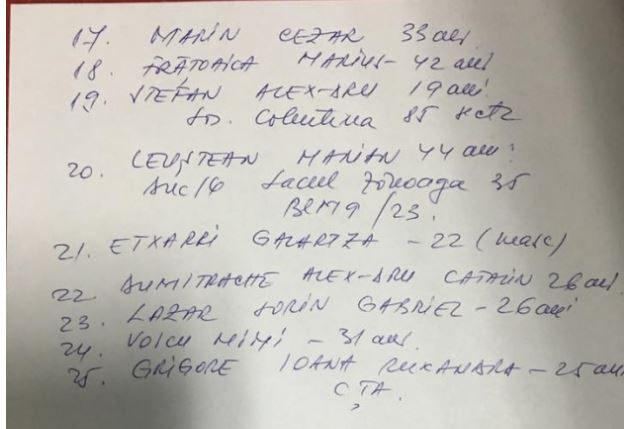 17. MARIN CEZAR 33 ani
18. FRĂȚOAICA MARIUS - 42 ani
19. ȘTEFAN ALEX-DRU 19 ani
Colentina 85
20. LEUȘTEAN MARIAN 44 ani
Lacul 35
BL M9 / 23.
21. ETXARRI GALARTZA - 22 (masc)
22 DUMITRACHE ALEX-DRU CATALIN 26 ani
23. LAZAR SORIN GABRIEL - 26 ani
24. VOICU MIMI - 31 ani.
25. GRIGORE IOANA RUXANDRA - 25 ani
CȚA.